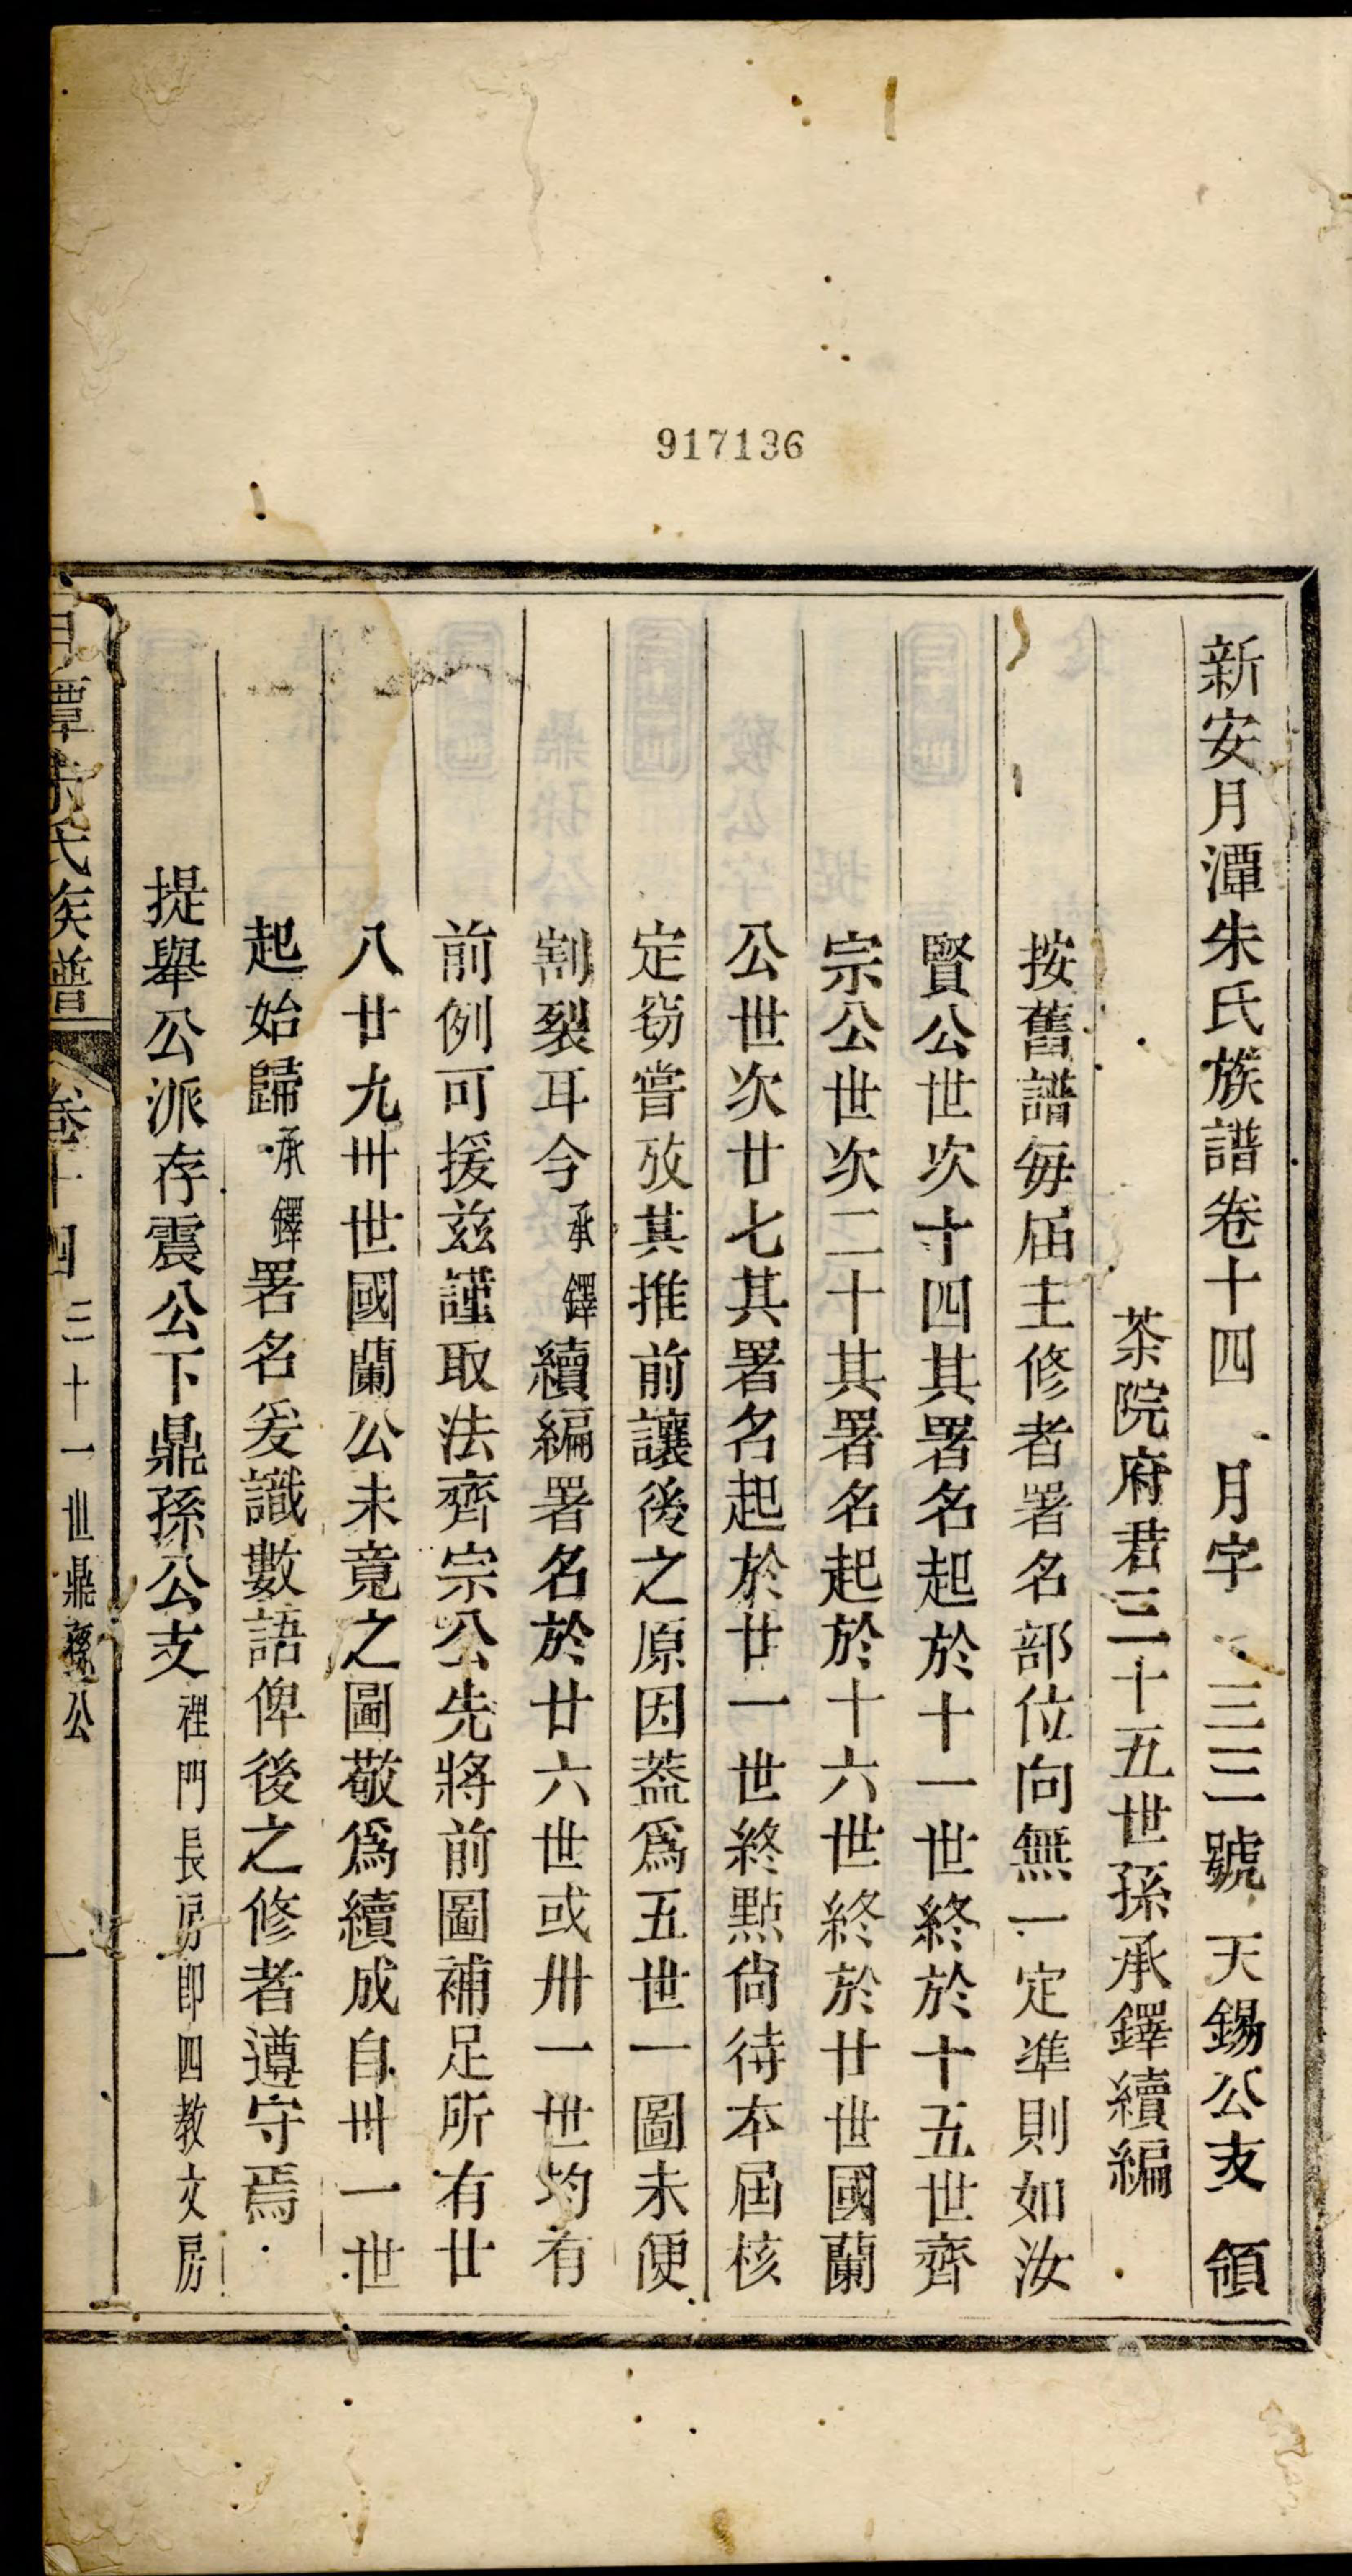 917136
新安月潭朱氏族譜卷十四 月字 三三號 天錫公支 領
茶院府君三十五世孫承鐸續編
按舊譜每届主修者署名部位向無一定準則如汝
賢公世次十四其署名起於十一世終於十五世齊
宗公世次二十其署名起於十六世終於廿世國蘭
公世次廿七其署名起於廿一世終點尙待本屆核
定窃嘗攷其推前讓後之原因葢爲五世一圖未便
割裂耳今承鐸續編署名於廿六世或卅一世均有
前例可援兹謹取法齊宗公先將前圖補足所有廿
八廿九卅世國蘭公未竟之圖敬爲續成自卅一世
起始歸承鐸署名爰識數語俾後之修者遵守焉
提舉公派存震公下鼎孫公支裡門長房卽四教文房
月潭朱氏族譜 卷十四 三十一世鼎孫公 一